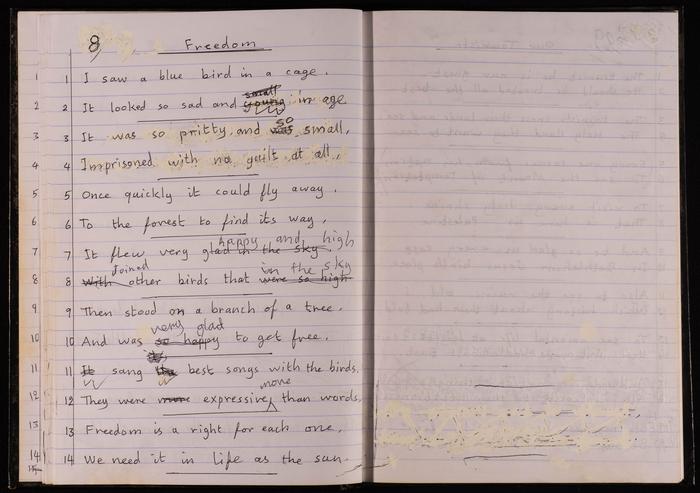 8 Freedom
1 1 I saw a blue bird in a cage.
small
2 2 It looked so sad and young in age
so
3 3 It was so pritty, and was small,
4 4 Imprisoned with no guilt at all,
5 5 Once quickly it could fly away.
6 6 To the forest to find its way,
happy and high
7 7 It flew very glad in the sky.
Joined in the sky
8 8 With other birds that were so high
9 9 Then stood on a branch of a tree.
very glad
10 10 And was so happy to get free.
11 11 It sang the best songs with the birds.
more
12 12 They were more expressive, than words,
13 13 Freedom is a right for each one.
14 14 We need it in life as the sun.